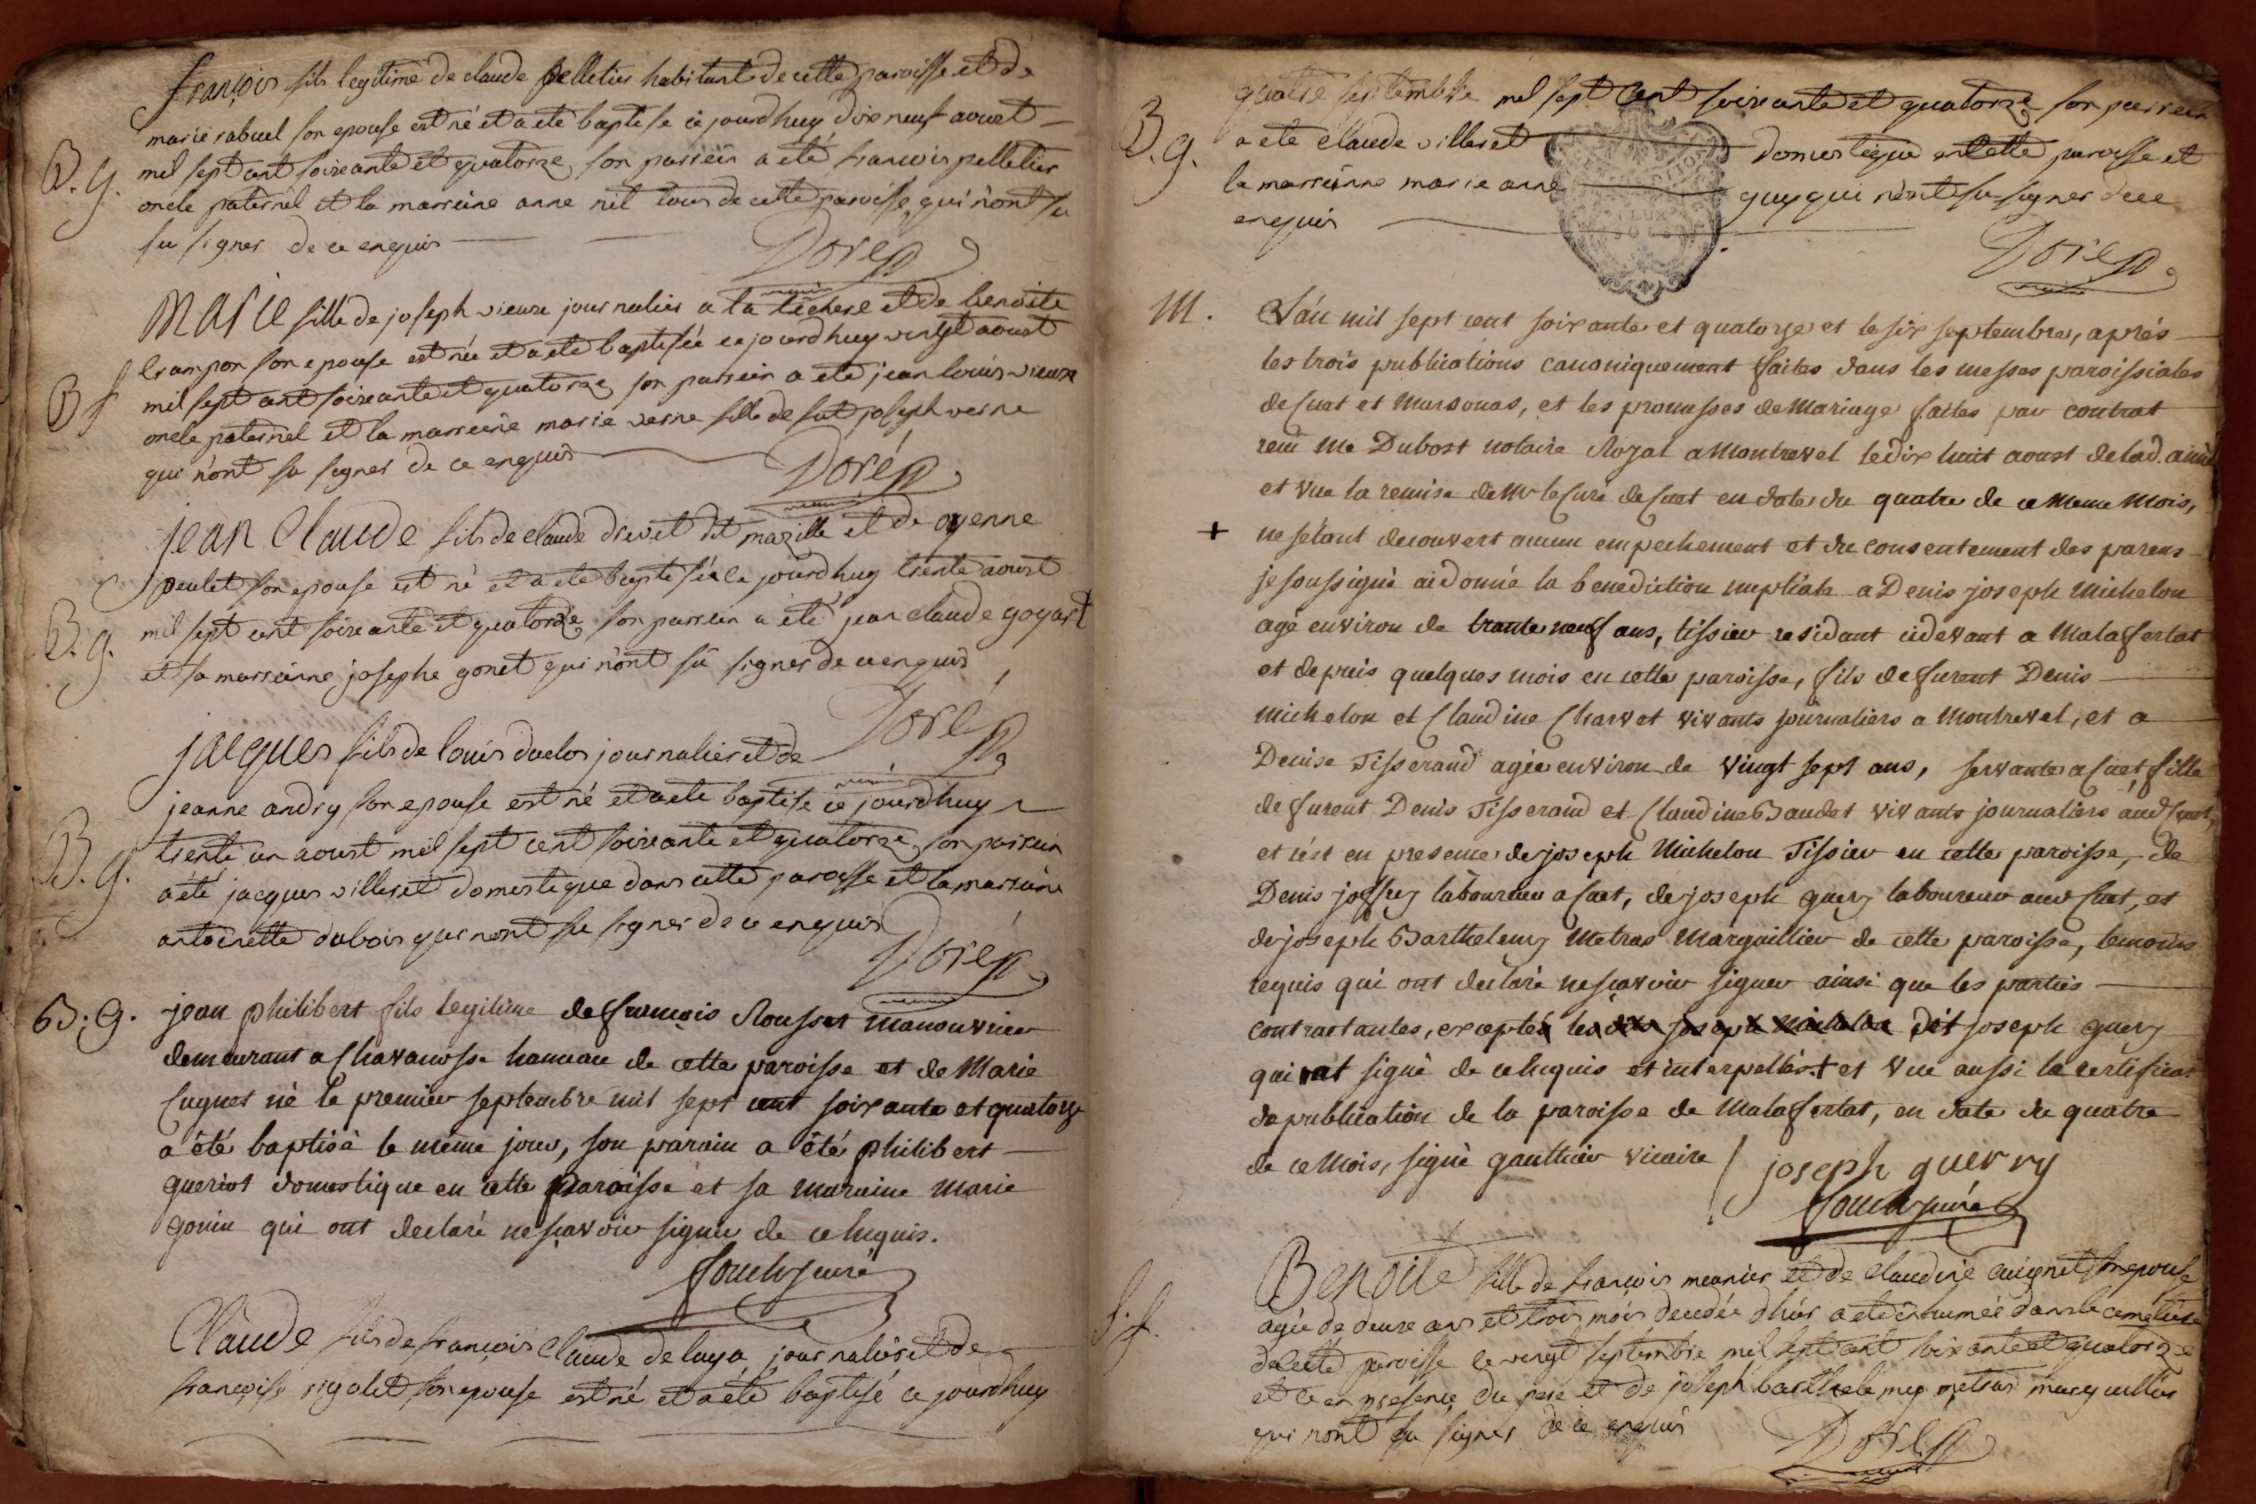 françois fils legitime de claude pelletier habitant de cette paroisse et de
marie rabuel son epouse est né et a eté baptisé ce jourdhuy dix neuf aoust
B. g. mil sept cent soixante et quatorze, son parrein a été francois pelletier
oncle paternel et la marreine anne nit tous de cette paroisse, qui n'ont su
su signer de ce enquis
Doré p
Marie fille de joseph vieux journalier a la léchere et de benoite
crampon son epouse est née et a eté baptisée ce jourdhuy vingt aoust
B f mil sept cent soixante et quatorze son parrein a eté jean louis vieux
oncle paternel et la marreine marie verne fille de fut joseph verne
qui n'ont su signer de ce enquis
Doré p
jean Claude fils de claude drevet dit mazille et de oyenne
peulet son epouse est né et a eté baptisé ce jourdhuy trente aoust
B. g. mil sept cent soixante et quatorze, son parrein a été jean claude goyard
et la marreinne josephe gonet qui n'ont su signer de ce enquis
Doré p
jacques fils de louis duclos journalier et de
jeanne andry son epouse est né et a eté baptisé ce jourdhuy
B. g. trente un aoust mil sept cent soixante et quatorze, son parrein
a été jacques villeret domestique dans cette paroisse et la marreine
antoinette dubois qui n'ont su signer de ce enquis
Doré p
B. g. jean philibert fils legitime de françois Rousset manouvrier
demeurant a Chavanosse hameau de cette paroisse et de Marie
Cugnet né le premier septembre mil sept cent soixante et quatorze
a été baptisé le même jour, son parain a été philibert
gueriot domestique en cette paroisse et sa maraine marie
gonin qui ont declaré ne sçavoir signer de ce Enquis.
curé
Claude fils de françois claude de luya journalier et de
françoise rigolet son epouse est né et a eté baptisé ce jourdhuy
quatre septembre mil sept cent soixante et quatorze son parrein
B. g. a eté claude villeret domestique en cette paroisse et
la marreinne marie anne guy qui n'ont su signer de ce
enquis
Doré p
M. L'an mil sept cent soixante et quatorze et le six septembre, aprés
les trois publications canoniquement faites dans les messes paroissiales
de Cuet et Marsonas, et les promesses de Mariage faites par contrat
reçu Me Dubost notaire Royal a Montrevel le dix huit aoust de lad. année
et Vue la remise de Mr le Curé de Cuet en date du quatre de ce Meme Mois,
+ ne s'étant decouvert aucun empechement et du consentement des parens
je soussigné ai donné la benediction nuptiale a Denis joseph Michelon
agé environ de trante neuf ans, tissier residant cidevant a Malaffertat
et depuis quelques mois en cette paroisse, fils de furent Denis
Michelon et Claudine Charvet vivants journaliers a Montrevel, et a
Denise Tisserand agée environ de vingt sept ans, servante a Cuet, fille
de furent Denis Tisserand et Claudine Baudet vivants journaliers aud Cuet,
et c'est en presence de joseph Michelon Tissier en cette paroisse, de
Denis joffrey laboureur a Cuet, de joseph guery laboureur aud Cuet, et
de joseph Barthelemy Metras Marguillier de cette paroisse, temoins
requis qui ont declaré ne sçavoir signer ainsi que les parties
contractantes, excepté joseph Michelon dit joseph guery
qui ont signé de ce Enquis et interpellés.+ et Vue aussi le certificat
de publication de la paroisse de Malaffertat, en date du quatre
de ce Mois, signé gauthier vicaire
joseph guerry
curé
Benoite fille de françois meunier et de claudine cuignet son epouse
agée de deux ans et trois mois decedée d'hier a eté inhumée dans le cemetiere
de cette paroisse le vingt septembre mil sept cent soixante et quatorze
et ce en presence du pere et de joseph barthelemy metras marguillier
qui n'ont su signer de ce enquis
Doré p